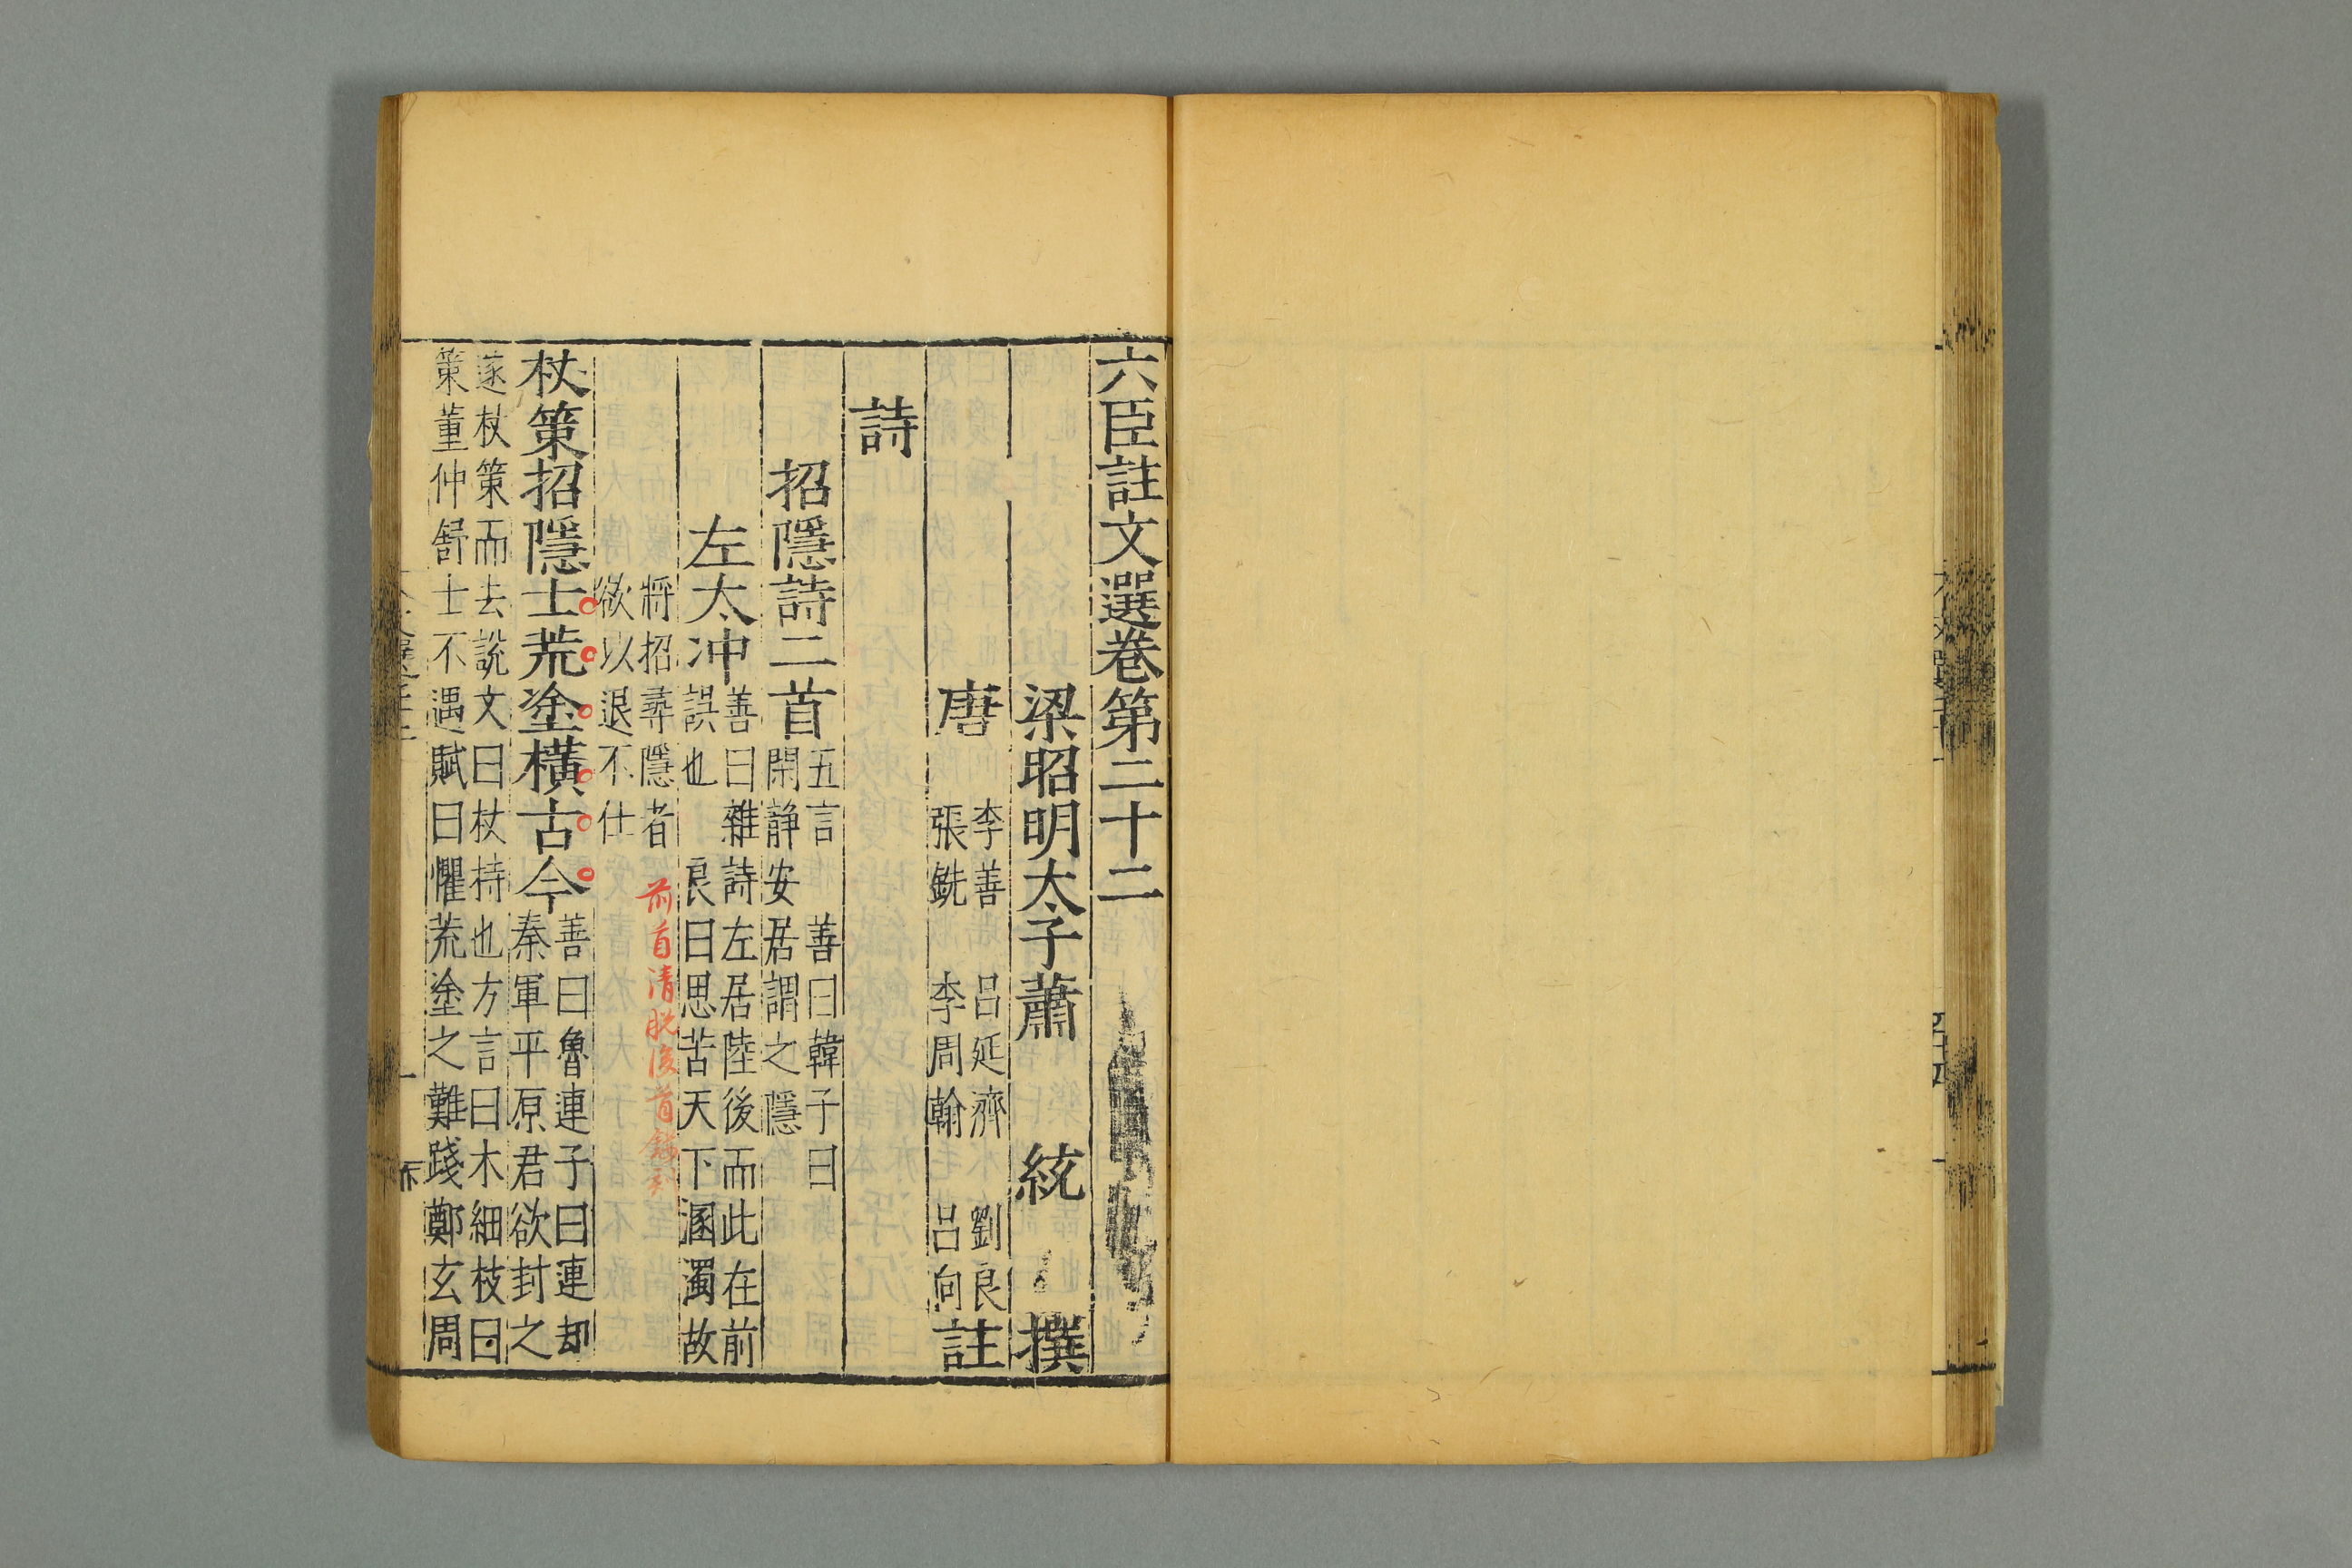 六臣註文選卷第二十二
梁昭明太子蕭 統 撰
唐 李善 呂延濟 劉良
張銑 李周翰 呂向 註
詩
招隱詩二首 五言 善曰韓子曰
閑靜安居謂之隱
左太冲 善曰雜詩左居陸後而此在前
誤也 良曰思苦天下溷濁故
將招尋隱者
欲以退不仕
前首清脫後首
杖策招隱士荒塗橫古今 善曰魯連子曰連却
秦軍平原君欲封之
遂杖策而去說文曰杖持也方言曰木細枝曰
策董仲舒士不遇賦曰懼荒塗之難踐鄭玄周